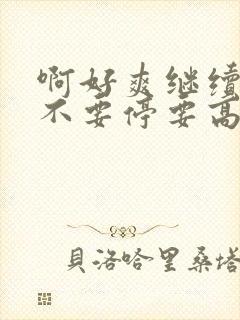 啊好爽继续
不要停要高
貝洛哈里桑塔